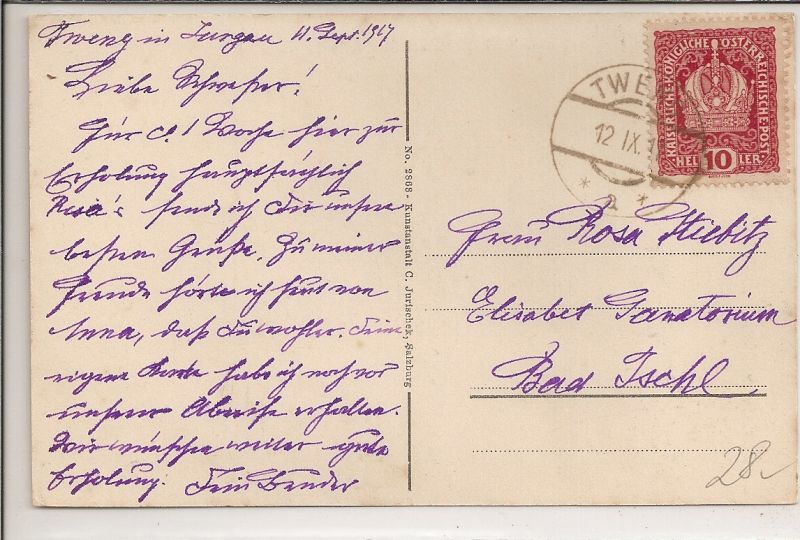 Tweng im Lungau 11. Sept. 1917
Liebe Schwester!
Für c/1 Woche hier zur
Erholung hauptsächlich
Rosa's sende ich Dir unsere
besten Grüße. Zu meiner
Freude hörte ich heut von
Anna, daß Du wohler. Deine
eigene Karte habe ich noch vor
unserer Abreise erhalten.
Wir wünschen weiter gute
Erholung. Dein Bruder
No. 2868 - Kunstanstalt C. Jurischek, Salzburg
KAISERLICHE KÖNIGLICHE ÖSTERREICHISCHE POST
HELLER 10
TWE
12 IX. 1
* a *
Frau Rosa Stiebitz
Elisabet Sanatorium
Bad Ischl.
28.-